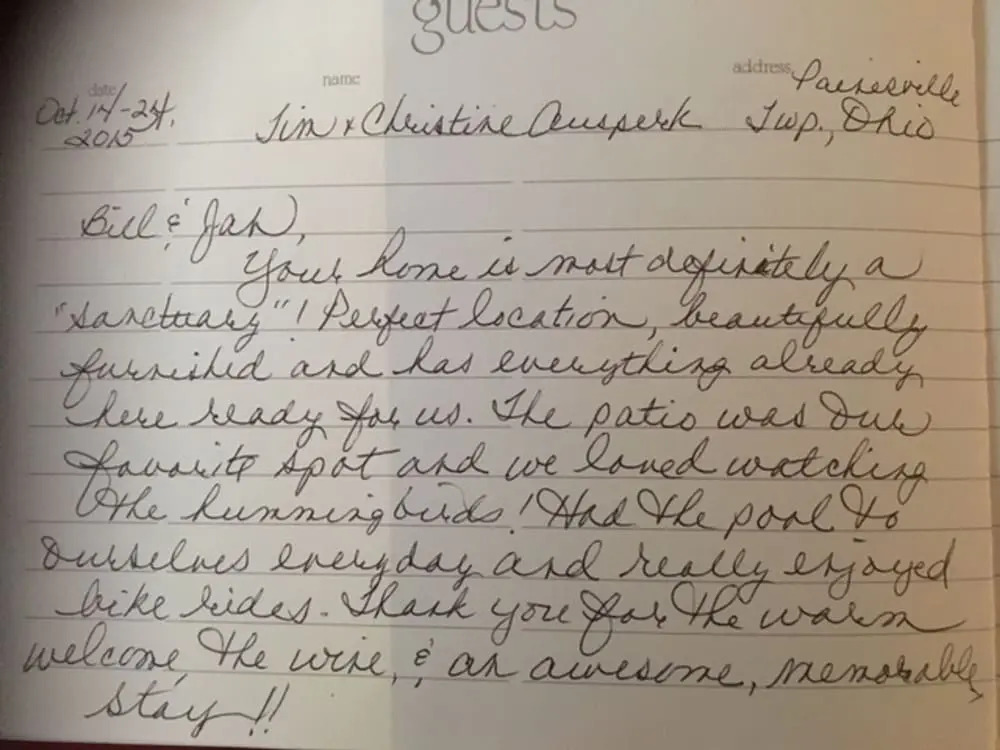 guests
date name address Painesville
Oct. 14-24, Jim & Christine Ausperk Twp., Ohio
2015
Bill & Jan,
Your home is most definitely a
"sanctuary"! Perfect location, beautifully
furnished and has everything already
here ready for us. The patio was our
favorite spot and we loved watching
the hummingbirds! Had the pool to
ourselves everyday and really enjoyed
bike rides. Thank you for the warm
welcome, the wine, & an awesome, memorable
stay!!